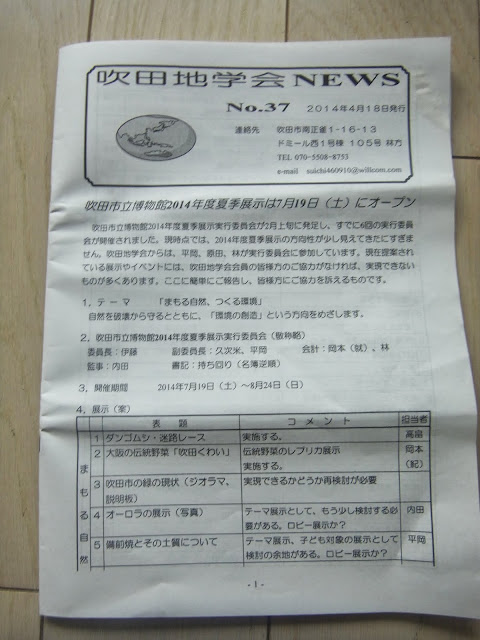 吹田地学会 NEWS
No.37 2014年4月18日発行
連絡先 吹田市南正雀1-16-13
ドミール西1号棟 105号 林方
TEL 070-5508-8753
e-mail suichi460910@willcom.com
吹田市立博物館2014年度夏季展示は7月19日（土）にオープン
吹田市立博物館2014年度夏季展示実行委員会が2月上旬に発足し、すでに6回の実行委員
会が開催されました。現時点では、2014年度夏季展示の方向性が少し見えてきたにすぎま
せん。吹田地学会からは、平岡、原田、林が実行委員会に参加しています。現在提案され
ている展示やイベントには、吹田地学会会員の皆様方のご協力がなければ、実現できない
ものが多くあります。ここに簡単にご報告し、皆様方にご協力を訴えるものです。
1，テーマ 「まもる自然、つくる環境」
自然を破壊から守るとともに、「環境の創造」という方向をめざします。
2，吹田市立博物館2014年度夏季展示実行委員会（敬称略）
委員長：伊藤 副委員長：久次米、平岡 会計：岡本（就）、林
監事：内田 書記：持ち回り（名簿逆順）
3，開催期間 2014年7月19日（土）～8月24日（日）
4，展示（案）
表 題 コメント 担当者
まもる自然
1 ダンゴムシ・迷路レース 実施する。 高畠
2 大阪の伝統野菜「吹田くわい」 伝統野菜のレプリカ展示 岡本
実施する。 （紀）
3 吹田市の緑の現状（ジオラマ、 実現できるかどうか再検討が必要
説明板）
4 オーロラの展示（写真） テーマ展示として、もう少し検討する必 内田
要がある。ロビー展示か？
5 備前焼とその土質について テーマ展示、子ども対象の展示として 平岡
検討の余地がある。ロビー展示か？
- 1 -